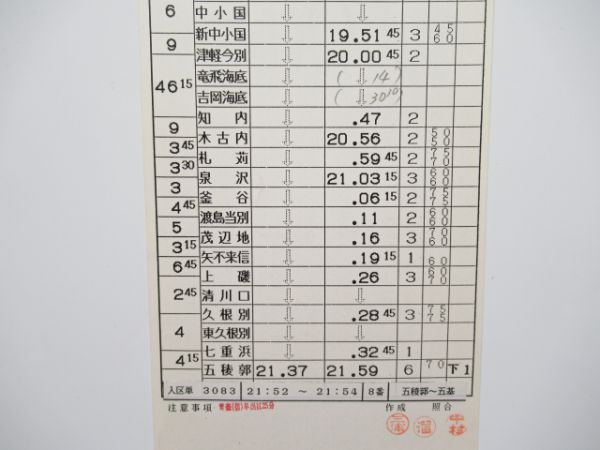 6 中小国 ⇩ ⇩
新中小国 ⇩ 19.51 45 3 45 60
9
津軽今別 ⇩ 20.00 45 2
46 15
竜飛海底 ⇩ (↓14)
吉岡海底 ⇩ (↓30 10)
知内 ⇩ .47 2
9
木古内 ⇩ 20.56 2 50 50
3 45
札苅 ⇩ .59 45 2 75 70
3 30
泉沢 ⇩ 21.03 15 3 60 60
3
釜谷 ⇩ .06 15 2 75 75
4 45
渡島当別 ⇩ .11 2 60 60
5
茂辺地 ⇩ .16 3 70 60
3 15
矢不来信 ⇩ .19 15 1 60
6 45
上磯 ⇩ .26 3 60 70
清川口 ⇩ ⇩
2 45
久根別 ⇩ .28 45 3 75 75
東久根別 ⇩ ⇩
4
七重浜 ⇩ .32 45 1
4 15
五稜郭 21.37 21.59 6 70 下1
入区単 3083 21:52 ～ 21:54 8番 五稜郭～五基
注意事項 作成 照合
中村